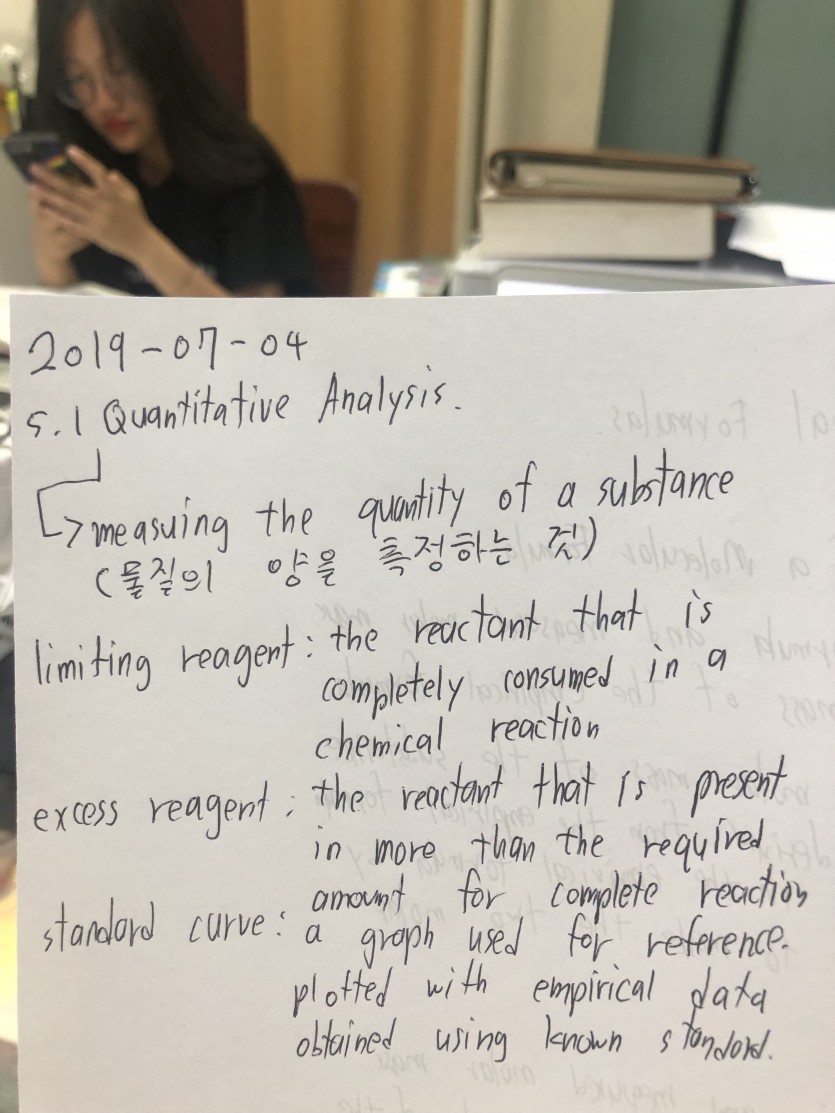 2019-07-04
5.1 Quantitative Analysis.
measuing the quantity of a substance
(물질의 양을 측정하는 것)
limiting reagent: the reactant that is
completely consumed in a
chemical reaction
excess reagent: the reactant that is present
in more than the required
amount for complete reaction
standard curve: a graph used for reference.
plotted with empirical data
obtained using known standard.